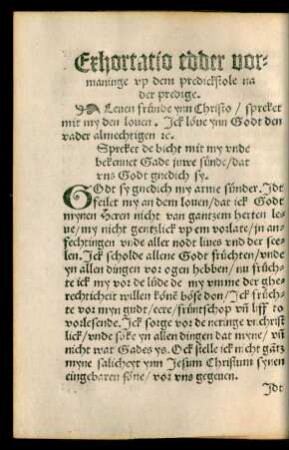 Exhortatio edder vor-
maninge vp dem predickstole na
der predige.
Leuen fründe ynn Christo / spreket
mit my den louen. Jck löue ynn Godt den
vader almechtigen ꝛc.
Spreket de bicht mit my vnde
bekennet Gade juwe sünde / dat
vns Godt gnedich sy.
GOdt sy gnedich my arme sünder. Jdt
feilet my an dem louen / dat ick Godt
mynen Heren nicht van gantzem herten lo-
ue / my nicht gentzlick vp em vorlate / jn an-
fechtingen vnde aller nodt liues vnd der see-
len. Jck scholde allene Godt früchten / vnde
yn allen dingen vor ogen hebben / nu früch-
te ick my vor de lüde de my vmme der ghe-
rechticheit willen könē böse don / Jck früch-
te vor myn gudt / eere / früntschop vñ liff to
vorlesende. Jck sorge vor de neringe vñchrist
lick / vnde söke yn allen dingen dat myne / vñ
nicht wat Gades ys. Ock stelle ick nicht gātz
myne salicheyt ynn Jesum Christum synen
eingebaren söne / vor vns gegeuen.
Jdt